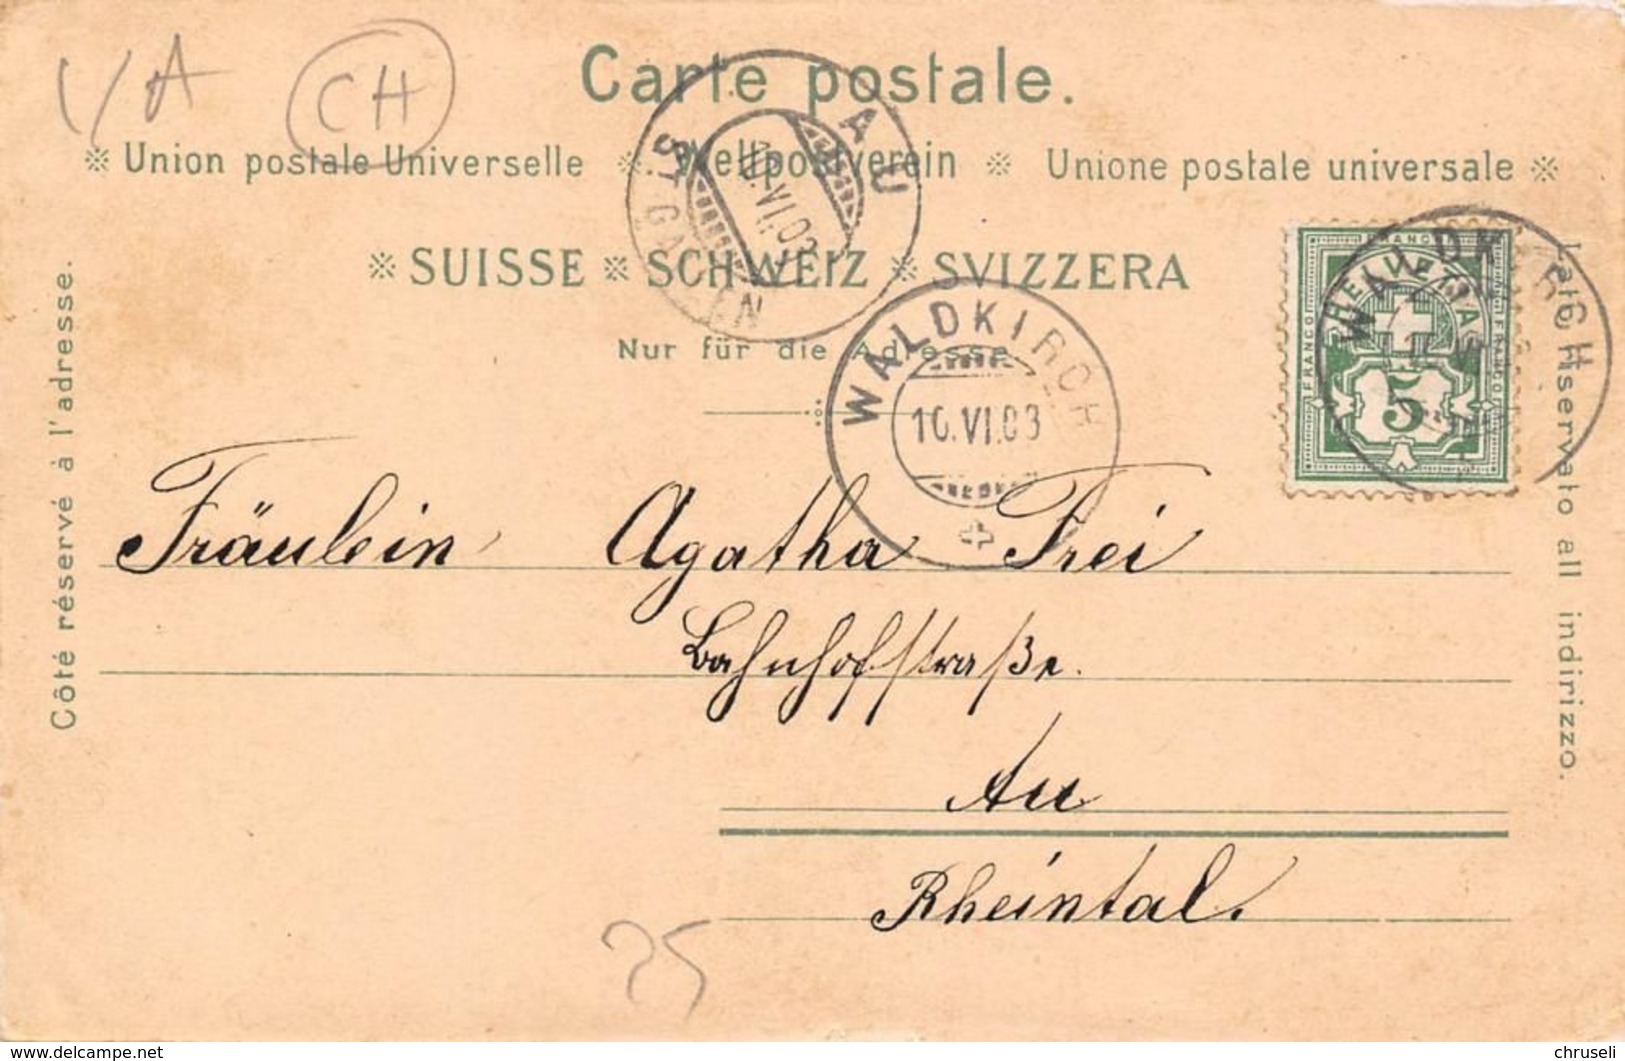 V/A CH
Carte postale.
※ Union postale Universelle ※ Weltpostverein ※ Unione postale universale ※
※ SUISSE ※ SCHWEIZ ※ SVIZZERA
Nur für die Adresse
Côté réservé à l'adresse.
Lato riservato all indirizzo.
AU
ST. GALLEN
10.VI.03
WALDKIRCH
10.VI.03
WALDKIRCH
FRANCO
FRANCO
FRANCO
HELVETIA
5
Fräulein Agatha Frei
Bahnhofstraße.
Au
Rheintal.
25
delcampe.net
chruseli